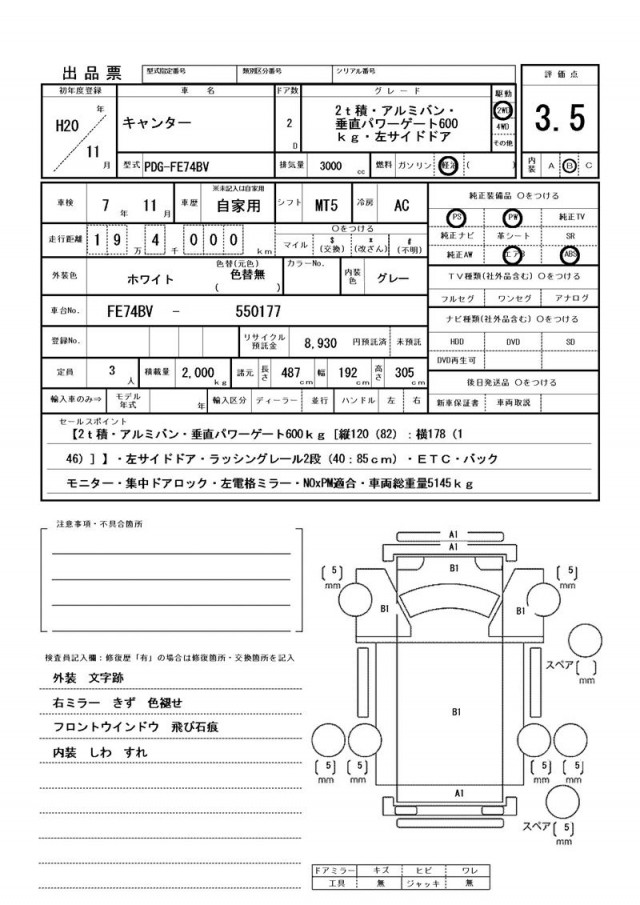 出品票 型式指定番号 類別区分番号 シリアル番号
初年度登録 車名 ドア数 グレード 駆動 評価点
H20年 キャンター 2D 2t積・アルミバン・ 2WD 3.5
垂直パワーゲート600 4WD
kg・左サイドドア その他
11月 型式 PDG-FE74BV 排気量 3000cc 燃料 ガソリン 軽油 ( ) 内装 A B C
車検 7年 11月 車歴 ※未記入は自家用 自家用 シフト MT5 冷房 AC 純正装備品 ○をつける
走行距離 19万4千000km ○をつける PS PW 純正TV
マイル $(交換) *(改ざん) #(不明) 純正ナビ 革シート SR
純正AW エアB ABS
外装色 ホワイト 色替(元色) 色替無 ( ) カラーNo. 内装色 グレー TV種類(社外品含む) ○をつける
フルセグ ワンセグ アナログ
車台No. FE74BV - 550177 ナビ種類(社外品含む) ○をつける
登録No. リサイクル預託金 8,930 円預託済 未預託 HDD DVD SD
DVD再生可
定員 3人 積載量 2,000kg 諸元 長さ 487cm 幅 192cm 高さ 305cm 後日発送品 ○をつける
輸入車のみ⇒ モデル年式 年 輸入区分 ディーラー 並行 ハンドル 左 右 新車保証書 車両取説
セールスポイント
【2t積・アルミバン・垂直パワーゲート600kg[縦120(82):横178(1
46)]】・左サイドドア・ラッシングレール2段(40:85cm)・ETC・バック
モニター・集中ドアロック・左電格ミラー・NOxPM適合・車両総重量5145kg
注意事項・不具合箇所
検査員記入欄:修復歴「有」の場合は修復箇所・交換箇所を記入
外装 文字跡
右ミラー きず 色褪せ
フロントウインドウ 飛び石痕
内装 しわ すれ
A1
A1
B1
(5)mm (5)mm
B1 B1
スペア( )mm
B1
(5)mm (5)mm (5)mm (5)mm
A1
スペア(5)mm
ドアミラー キズ ヒビ ワレ
工具 無 ジャッキ 無